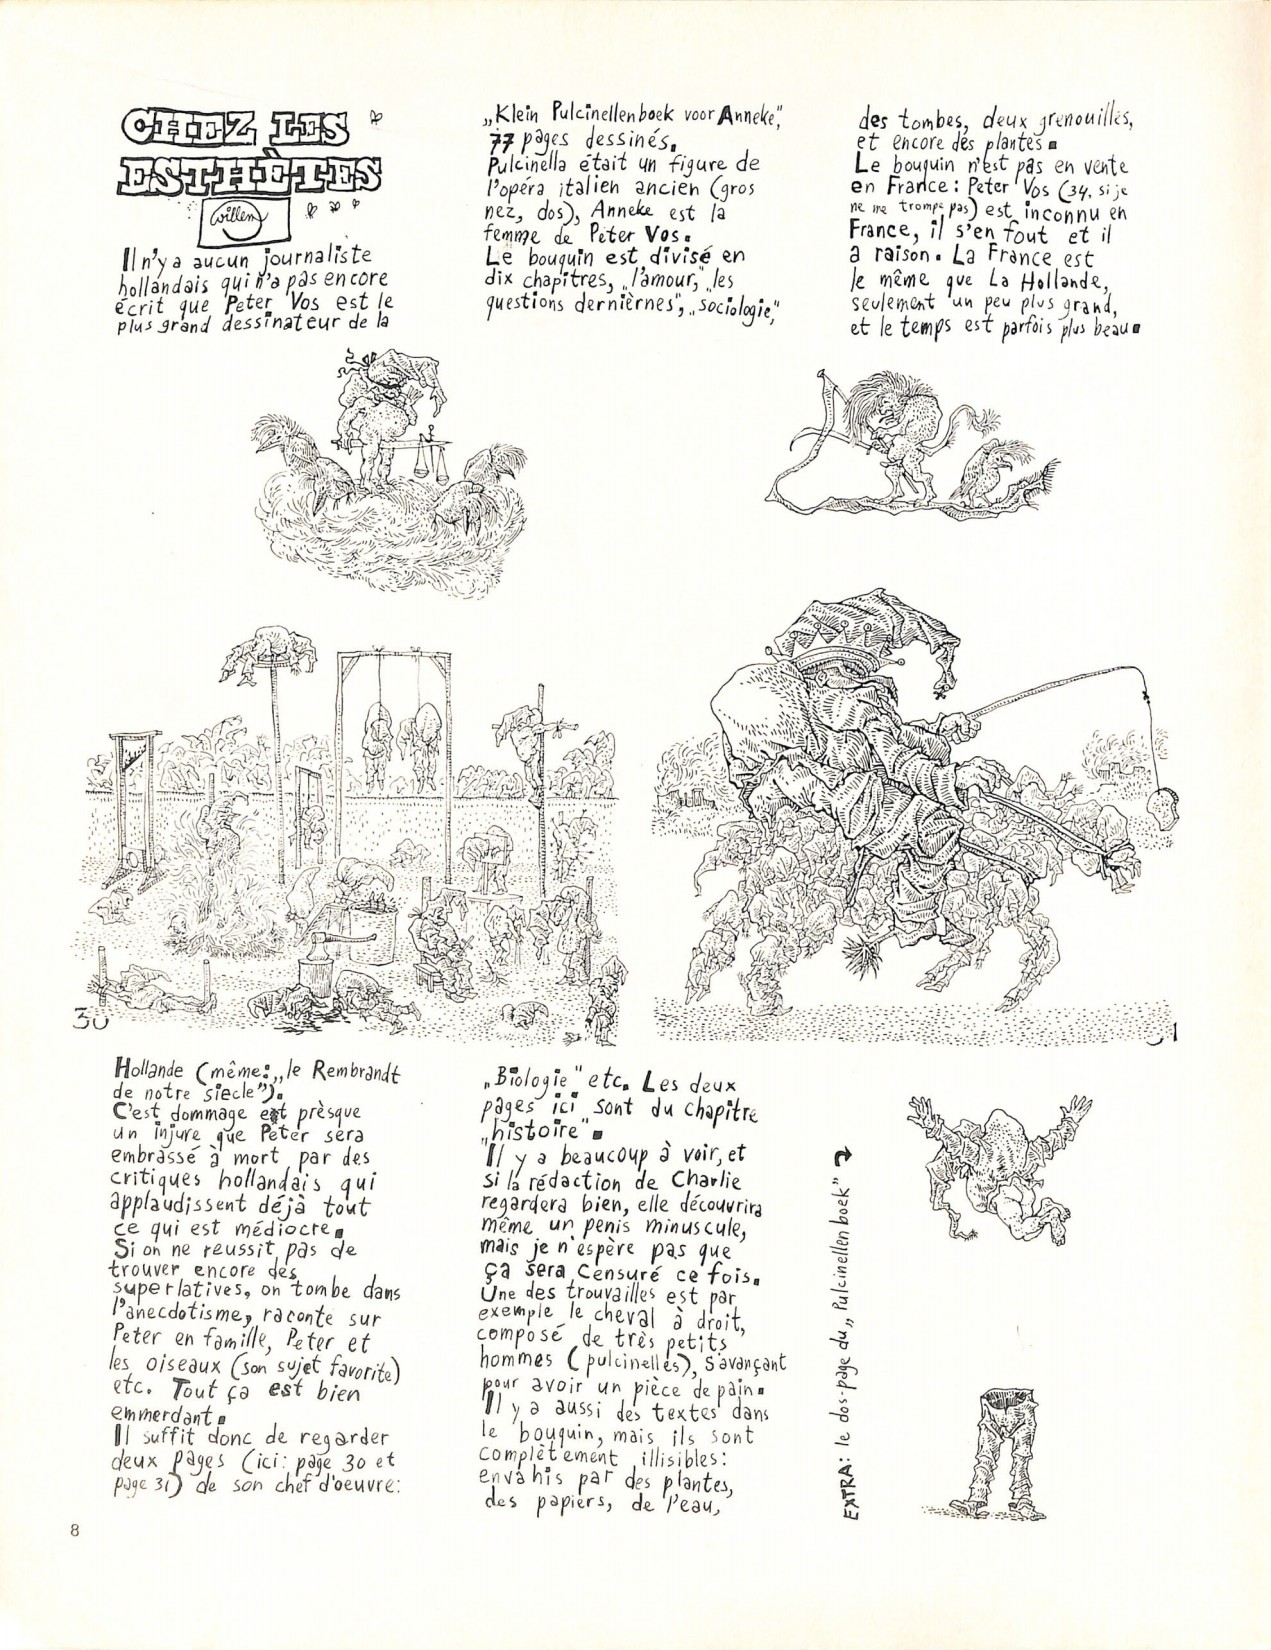 CHEZ LES
ESTHÈTES
willem
Il n'y a aucun journaliste
hollandais qui n'a pas encore
écrit que Peter Vos est le
plus grand dessinateur de la
Hollande (même: „le Rembrandt
de notre siecle").
C'est dommage et prèsque
un injure que Peter sera
embrassé à mort par des
critiques hollandais qui
applaudissent déjà tout
ce qui est médiocre.
Si on ne reussit pas de
trouver encore des
superlatives, on tombe dans
l'anecdotisme, raconte sur
Peter en famille, Peter et
les oiseaux (son sujet favorite)
etc. Tout ça est bien
emmerdant.
Il suffit donc de regarder
deux pages (ici: page 30 et
page 31) de son chef d'oeuvre:
„Klein Pulcinellenboek voor Anneke",
77 pages dessinés.
Pulcinella était un figure de
l'opéra italien ancien (gros
nez, dos), Anneke est la
femme de Peter Vos.
Le bouquin est divisé en
dix chapîtres, „l'amour," „les
questions dernièrnes", „sociologie",
„Biologie" etc. Les deux
pages ici sont du chapître
„histoire".
Il y a beaucoup à voir, et
si la rédaction de Charlie
regardera bien, elle découvrira
même un penis minuscule,
mais je n'espère pas que
ça sera censuré ce fois.
Une des trouvailles est par
exemple le cheval à droit,
composé de très petits
hommes (pulcinelles), s'avançant
pour avoir un pièce de pain.
Il y a aussi des textes dans
le bouquin, mais ils sont
complètement illisibles:
envahis par des plantes,
des papiers, de l'eau,
des tombes, deux grenouilles,
et encore des plantes.
Le bouquin n'est pas en vente
en France: Peter Vos (34, si je
ne me trompe pas) est inconnu en
France, il s'en fout et il
a raison. La France est
le même que La Hollande,
seulement un peu plus grand,
et le temps est parfois plus beau.
30
31
EXTRA: le dos-page du „Pulcinellenboek"
8